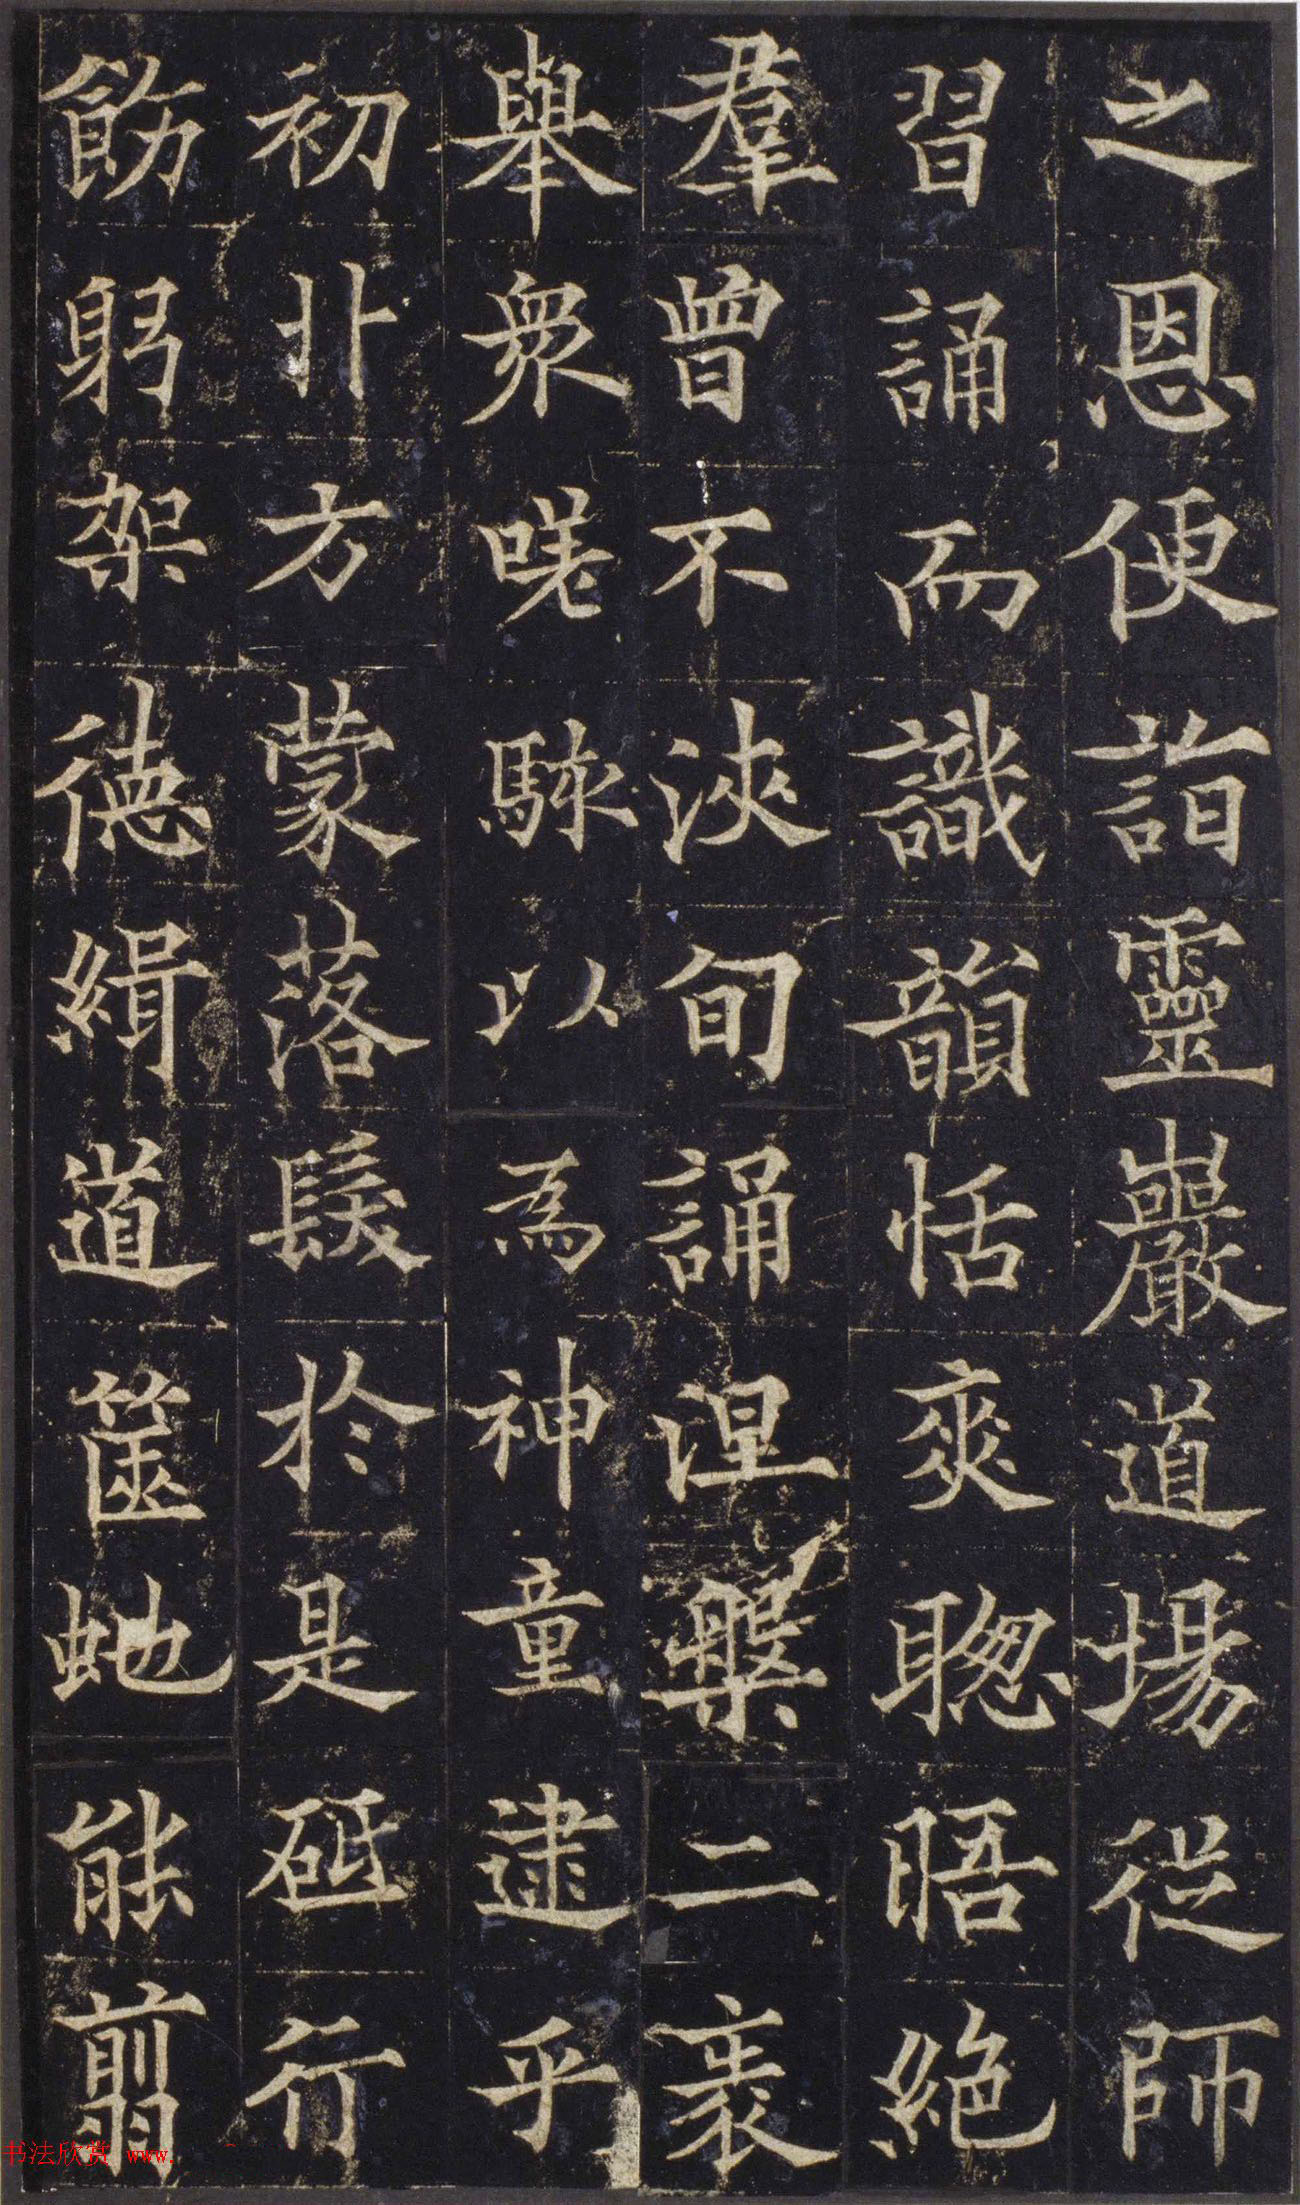 之恩便詣靈巖道場從師
習誦而識韻恬爽聰晤絕
羣曾不浹旬誦涅槃二袠
舉衆嗟騋以為神童逮乎
初卝方蒙落髮於是砥行
飭躬架德緝道篋虵能翦
书法欣赏 www.